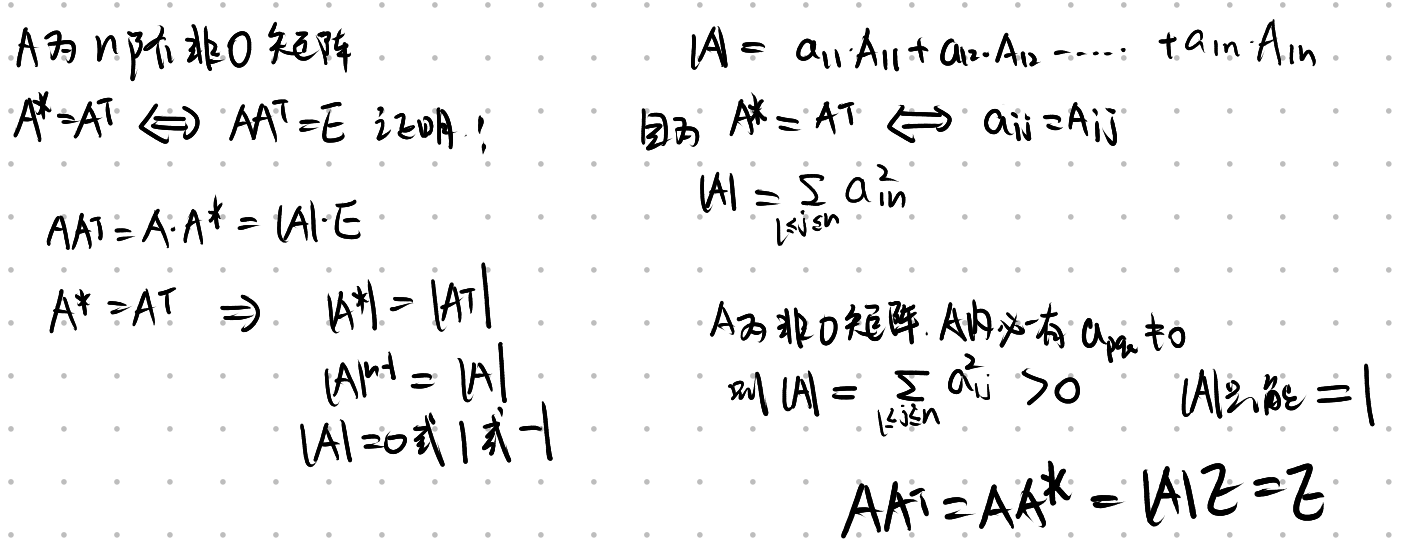 A为n阶非0矩阵
A*=Aᵀ ⟺ AAᵀ=E 证明!
AAᵀ=A·A*=|A|·E
A*=Aᵀ ⇒ |A*|=|Aᵀ|
|A|ⁿ⁻¹=|A|
|A|=0或1或-1
|A|= a₁₁·A₁₁+a₁₂·A₁₂-----: +a₁ₙ·A₁ₙ
因为 A*=Aᵀ ⟺ aᵢⱼ=Aᵢⱼ
|A|=∑_{1≤j≤n} a²₁ₙ
A为非0矩阵.A内必一有 a_{pq}≠0
则|A|=∑_{1≤j≤n} a²ᵢⱼ >0 |A|只能=1
AAᵀ=AA*=|A|E=E